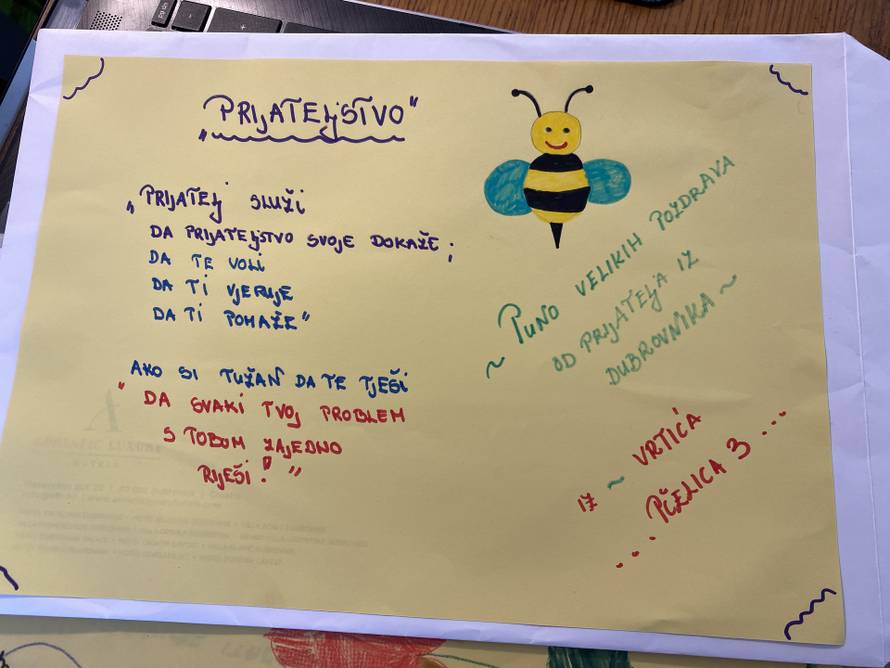 „PRIJATELJSTVO"
„PRIJATELJ SLUŽI
DA PRIJATELJSTVO SVOJE DOKAŽE;
DA TE VOLI
DA TI VJERUJE
DA TI POMAŽE"
AKO SI TUŽAN DA TE TJEŠI
"DA SVAKI TVOJ PROBLEM
S TOBOM ZAJEDNO
RIJEŠI!"
~ PUNO VELIKIH POZDRAVA
OD PRIJATELJA IZ
DUBROVNIKA ~
IZ ~ VRTIĆA
... PČELICA 3 ...